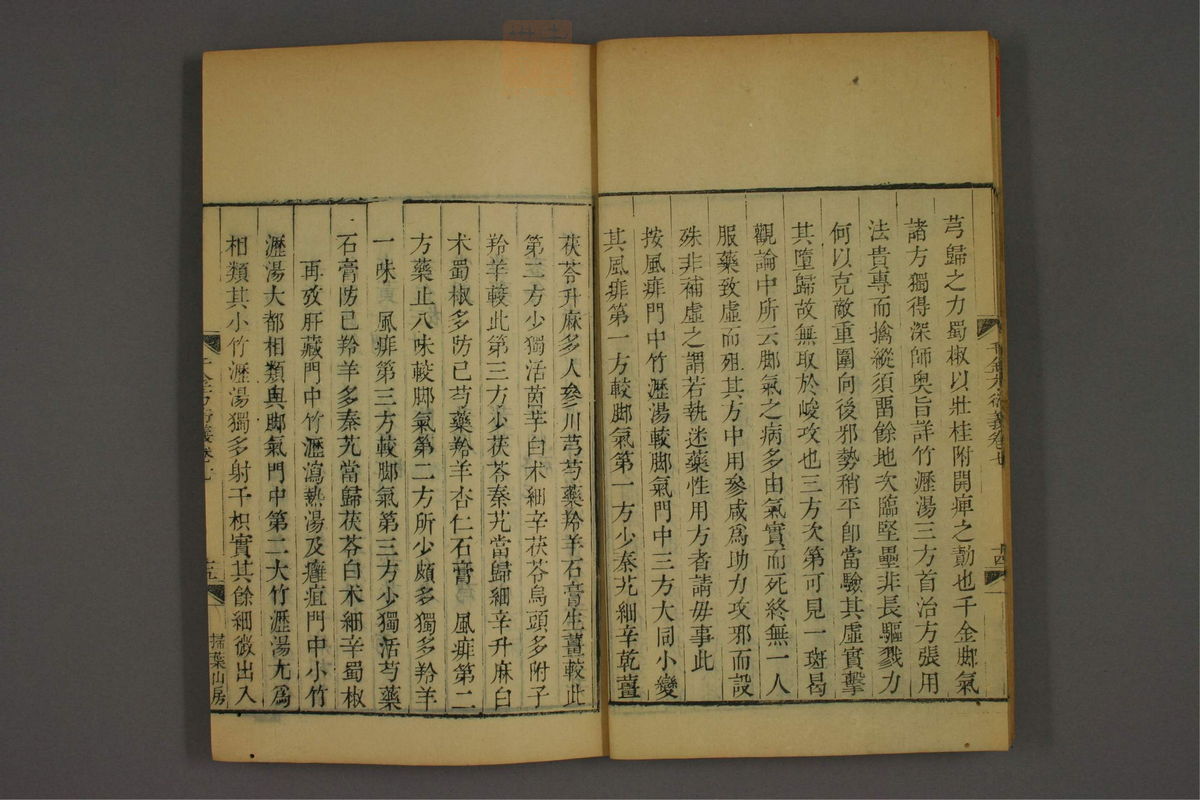 芎歸之力蜀椒以壯桂附開痺之勳也千金腳氣
諸方獨得深師奧旨詳竹瀝湯三方首治方張用
法貴專而擒縱須畱餘地次臨堅壘非長驅戮力
何以克敵重圍向後邪勢稍平卽當驗其虛實擊
其墮歸故無取於峻攻也三方次第可見一斑曷
觀論中所云腳氣之病多由氣實而死終無一人
服藥致虛而殂其方中用參咸爲助力攻邪而設
殊非補虛之謂若執迷藥性用方者請毋事此
按風痱門中竹瀝湯較腳氣門中三方大同小變
其風痱第一方較腳氣第一方少秦艽細辛乾薑
茯苓升麻多人參川芎芍藥羚羊石膏生薑較此
第三方少獨活茵芋白朮細辛茯苓烏頭多附子
羚羊較此第三方少茯苓秦艽當歸細辛升麻白
朮蜀椒多防已芍藥羚羊杏仁石膏 風痱第二
方藥止八味較腳氣第二方所少頗多獨多羚羊
一味 風痱第三方較腳氣第三方少獨活芍藥
石膏防已羚羊多秦艽當歸茯苓白朮細辛蜀椒
再攷肝藏門中竹瀝瀉熱湯及癰疽門中小竹
瀝湯大都相類與腳氣門中第二大竹瀝湯尤爲
相類其小竹瀝湯獨多射干枳實其餘細微出入
掃葉山房